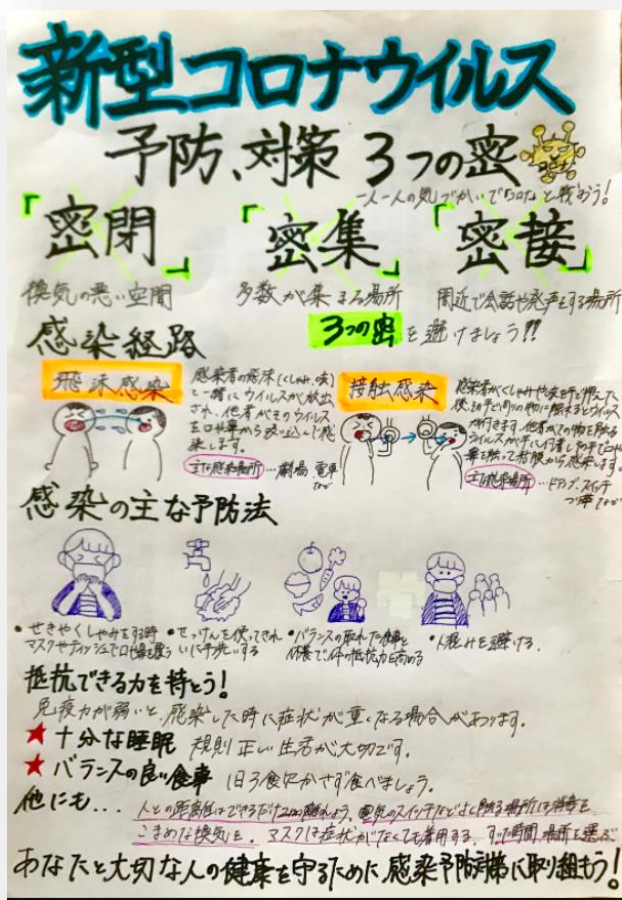 新型コロナウイルス
予防、対策 3つの密
一人一人の気づかいで「コロナ」と戦おう!
「密閉」 「密集」 「密接」
換気の悪い空間 多数が集まる場所 間近で会話や発声をする場所
3つの密を避けましょう!!
感染経路
飛沫感染
感染者の飛沫(くしゃみ、咳)
と一緒にウイルスが放出
され、他者がそのウイルス
を口や鼻から吸い込んで感
染します。
主な感染場所…劇場、電車
など
接触感染
感染者がくしゃみや咳を手で押えた
後、その手で周りの物に触れるとウイルス
が付きます。他者がその物を触る
とウイルスが手に付着し、その手で口や
鼻を触って粘膜から感染します。
主な感染場所…ドアノブ、スイッチ
つり革など
感染の主な予防法
・せきやくしゃみをする時
マスクやティッシュで口や鼻を覆う
・せっけんを使ってきれ
いに手洗いする
・バランスの取れた食事と
休養で、体の抵抗力を高める
・人混みを避ける。
抵抗できる力を持とう!
免疫力が弱いと、感染した時に症状が重くなる場合があります。
★十分な睡眠 規則正しい生活が大切です。
★バランスの良い食事 1日3食欠かさず食べましょう。
他にも... 人との距離はできるだけ2m離れましょう。電気のスイッチなどよく触る場所には消毒を
こまめな換気を。マスクは症状がなくても着用する。すいた時間、場所を選ぶ
あなたと大切な人の健康を守るために感染予防対策に取り組もう!